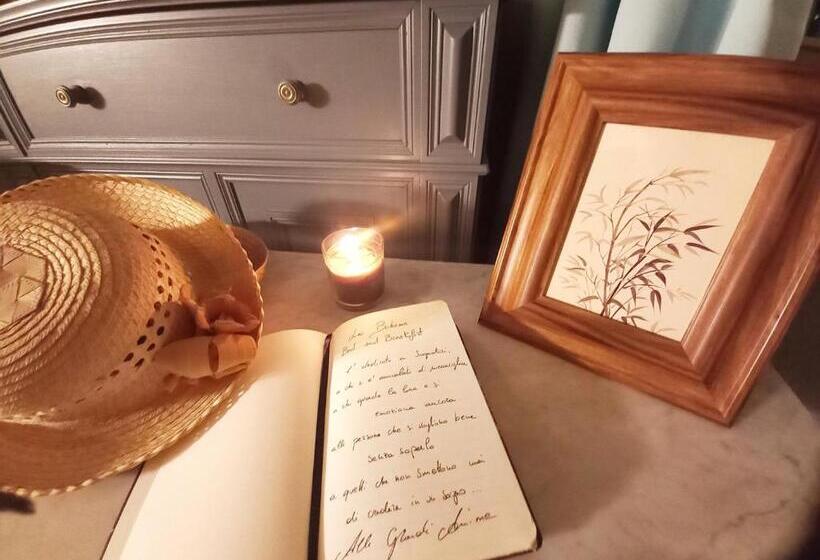 La Bohème
Bed and Breakfast
E' dedicato ai Sognatori,
a chi si è ammalato di meraviglia
a chi guarda la luna e si
emoziona ancora
alle persone che si vogliono bene
senza saperlo
a quelli che non smettono mai
di credere in un sogno...
Alle Grandi Anime